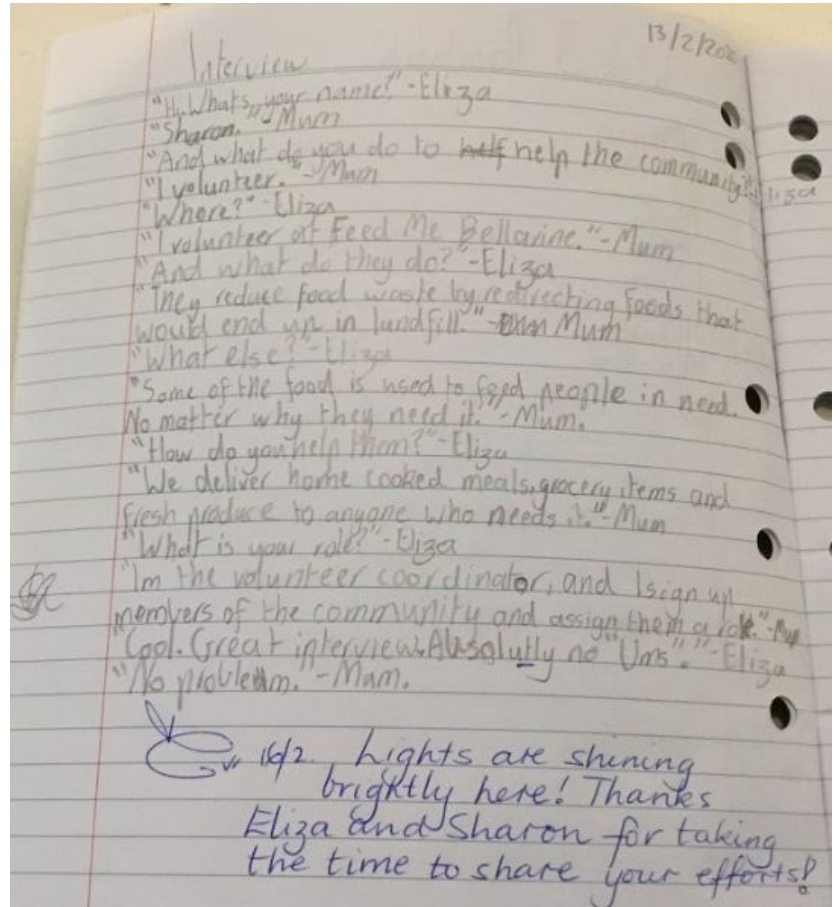 13/2/202
Interview
"Hi, Whats your name?" -Eliza
"Sharon." -Mum
"And what do you do to help the community?" -Eliza
"I volunteer." -Mum
"Where?" -Eliza
"I volunteer at Feed Me Bellarine." -Mum
"And what do they do?" -Eliza
"They reduce food waste by redirecting foods that
would end up in landfill." - Mum
"What else?" -Eliza
"Some of the food is used to feed people in need.
No matter why they need it." -Mum.
"How do you help them?" -Eliza
"We deliver home cooked meals, grocery items and
fresh produce to anyone who needs it." -Mum
"What is your role?" -Eliza
"Im the volunteer coordinator, and I sign up
members of the community and assign them a role." -Mum
"Cool. Great interview. Absolutly no "Ums"." -Eliza
"No problem." -Mum.
16/2. Lights are shining
brightly here! Thanks
Eliza and Sharon for taking
the time to share your efforts!